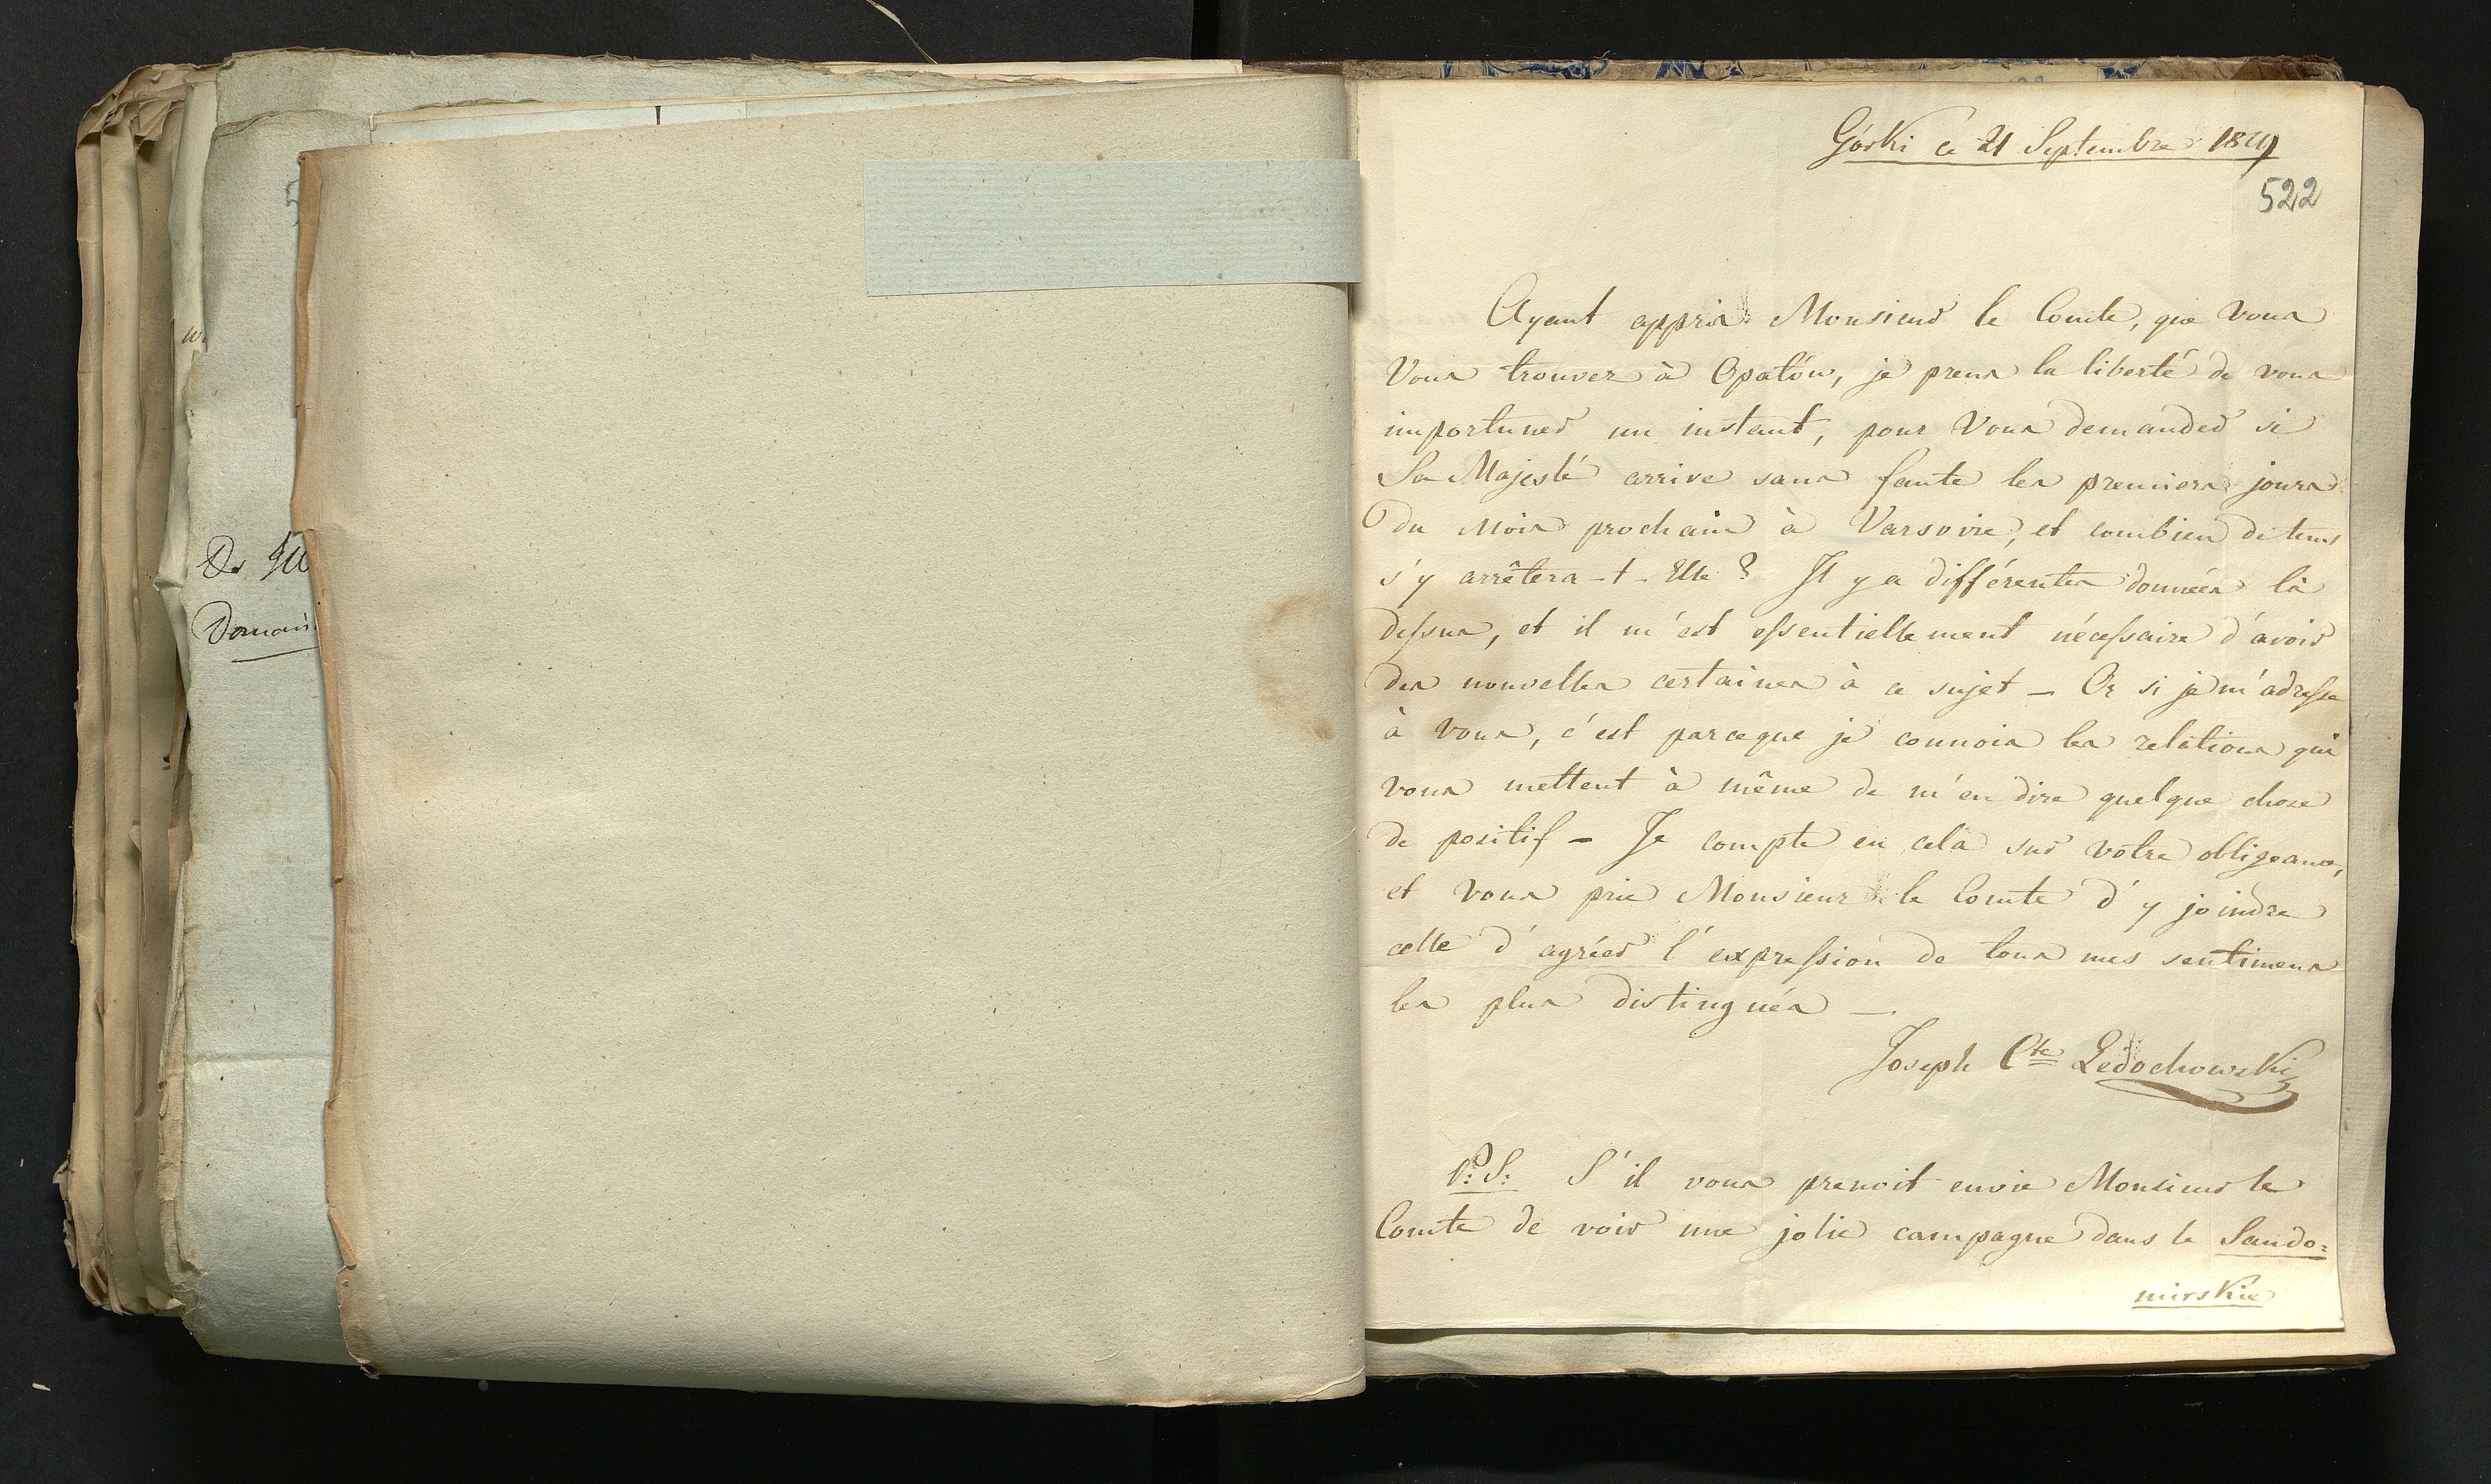 Górki ce 21 Septembre
522
Ayant appris Monsieur le Comte, que vous
Vous trouvez à Opatów, je prens la liberté de vous
importuner un instant, pour Vous demander si
Sa Majesté arrive sans faute les premiers jours
du mois prochain à Varsovie, et combien de tems
s'y arrêtera-t-Elle? Il y a différentes données là
dessus, et il m'est essentiellement nécessaire d'avoir
des nouvelles certaines à ce sujet — Or si je m'adresse
à vous, c'est parceque je connois les relations qui
vous mettent à même de m'en dire quelque chose
de positif — Je compte en cela sur votre obligeance,
et vous prie Monsieur le Comte d'y joindre
celle d'agréer l'expression de tous mes sentimens
les plus distingués —
Joseph Cte Ledochowski
P: S: S'il vous prenoit envie Monsieur le
Comte de voir une jolie campagne dans le Sando=
mirskie